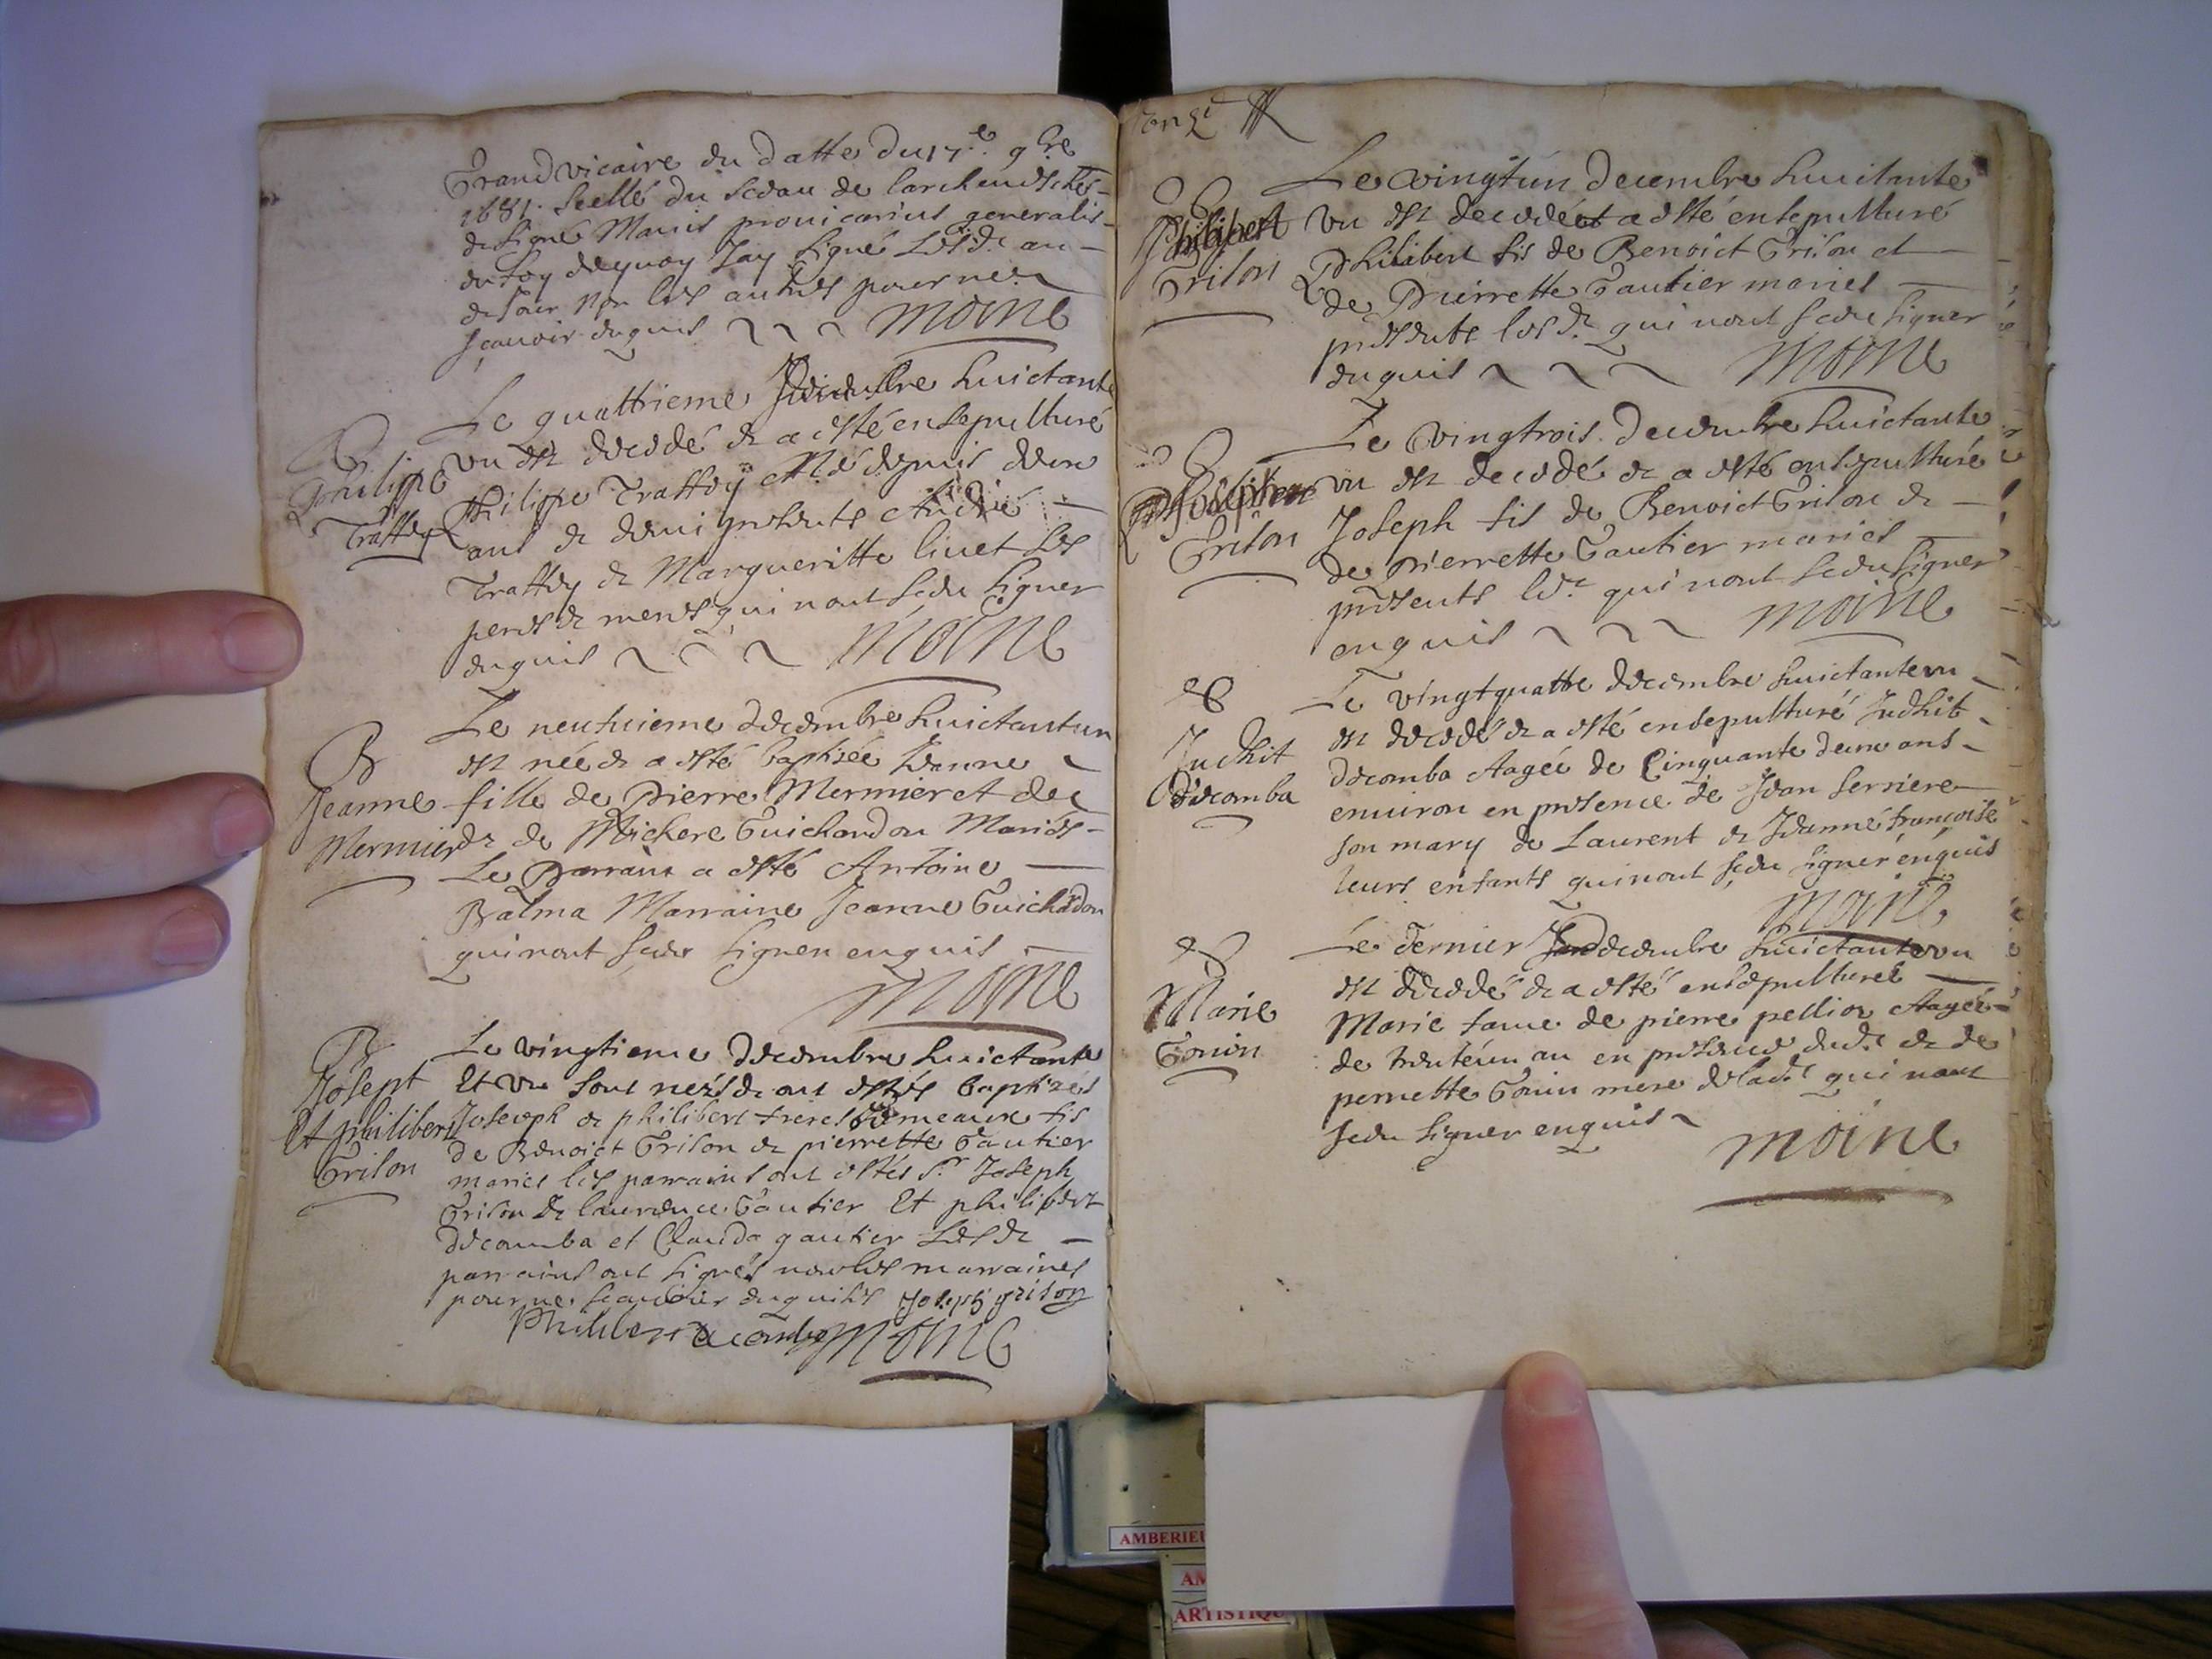 Grand vicaire en datte du 17.e 9bre
1681. scellé du sceau de larchevesché
& signé Manis provicarius generalis
en foy dequoy Jay signé
non les autres pour ne
sçavoir enquis moine
Le quattrieme decembre huictante
un est decedé & a esté ensepulturé
Philippe Trattey
Philippe Trattey né depuis deux
ans & demi presents André
Trattey & Margueritte livet ses
peres & meres qui nont sceu signer
enquis moine
Le neufvieme decembre huictantun
B
est née & a esté baptisée Jeanne
Jeanne Mermier
fille de Pierre Mermier et de
& de Guichardon Mariés
Le Parrain a esté Antoine
Balma Marraine Jeanne Guichardon
qui nont sceu signer enquis
moine
B
Le vingtieme decembre huictante
Josept Et philibert Grison
Et un sont neés & ont estés baptizés
Joseph & philibert freres gemeaux fis
de Benoict Grison & pierrette Gautier
mariés les parrains ont estés Sr. Joseph
Grison & laurence Gautier Et philibert
decomba et Clauda gautier Lesd.
parrains ont signés non les marraines
pour ne scavoir enquises Joseph grison
Philibert decomba moine
Le vingtun decembre huictante
Philibert Grison
un est decedé et a esté ensepulturé
Philibert fis de Benoict Grison et
de Pierrette Gautier mariés
presents lesd. qui nont sceu signer
enquis moine
Le vingtrois decembre huictante
Joseph Grison
un est decedé & a esté ensepulturé
Joseph fis de Benoict Grison &
de Pierrette Gautier mariés
presents lesd. qui nont sceu signer
enquis moine
Le vingtquatte decembre huictante un
Judhit decomba
est decedé & a esté ensepulturé Judhit
decomba Aagée de Cinquante deux ans
environ en presence de Jean serriere
son mary de Laurent & Jeanne françoise
leurs enfants qui nont sceu signer enquis
moine
Le dernier decembre huictante un
Marie Gonin
est decedé & a esté ensepulturée
Marie fame de pierre pellion Aagée
de trenteun an en presence dud. & de
pernette Gonin mere de lad. qui nont
sceu signer enquis
moine
AMBERIEU
AM
ARTISTIQU